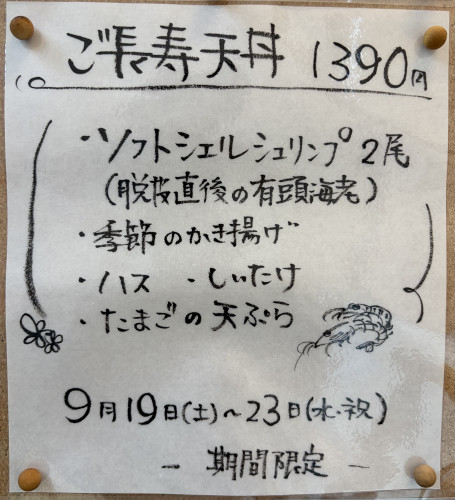 ご長寿天丼 1390円
・ソフトシェルシュリンプ 2尾
(脱皮直後の有頭海老)
・季節のかき揚げ
・ハス ・しいたけ
・たまごの天ぷら
9月19日(土)~23日(水・祝)
— 期間限定 —